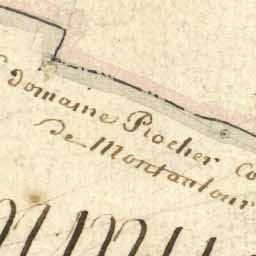 domaine Piocher Co
de Montautour